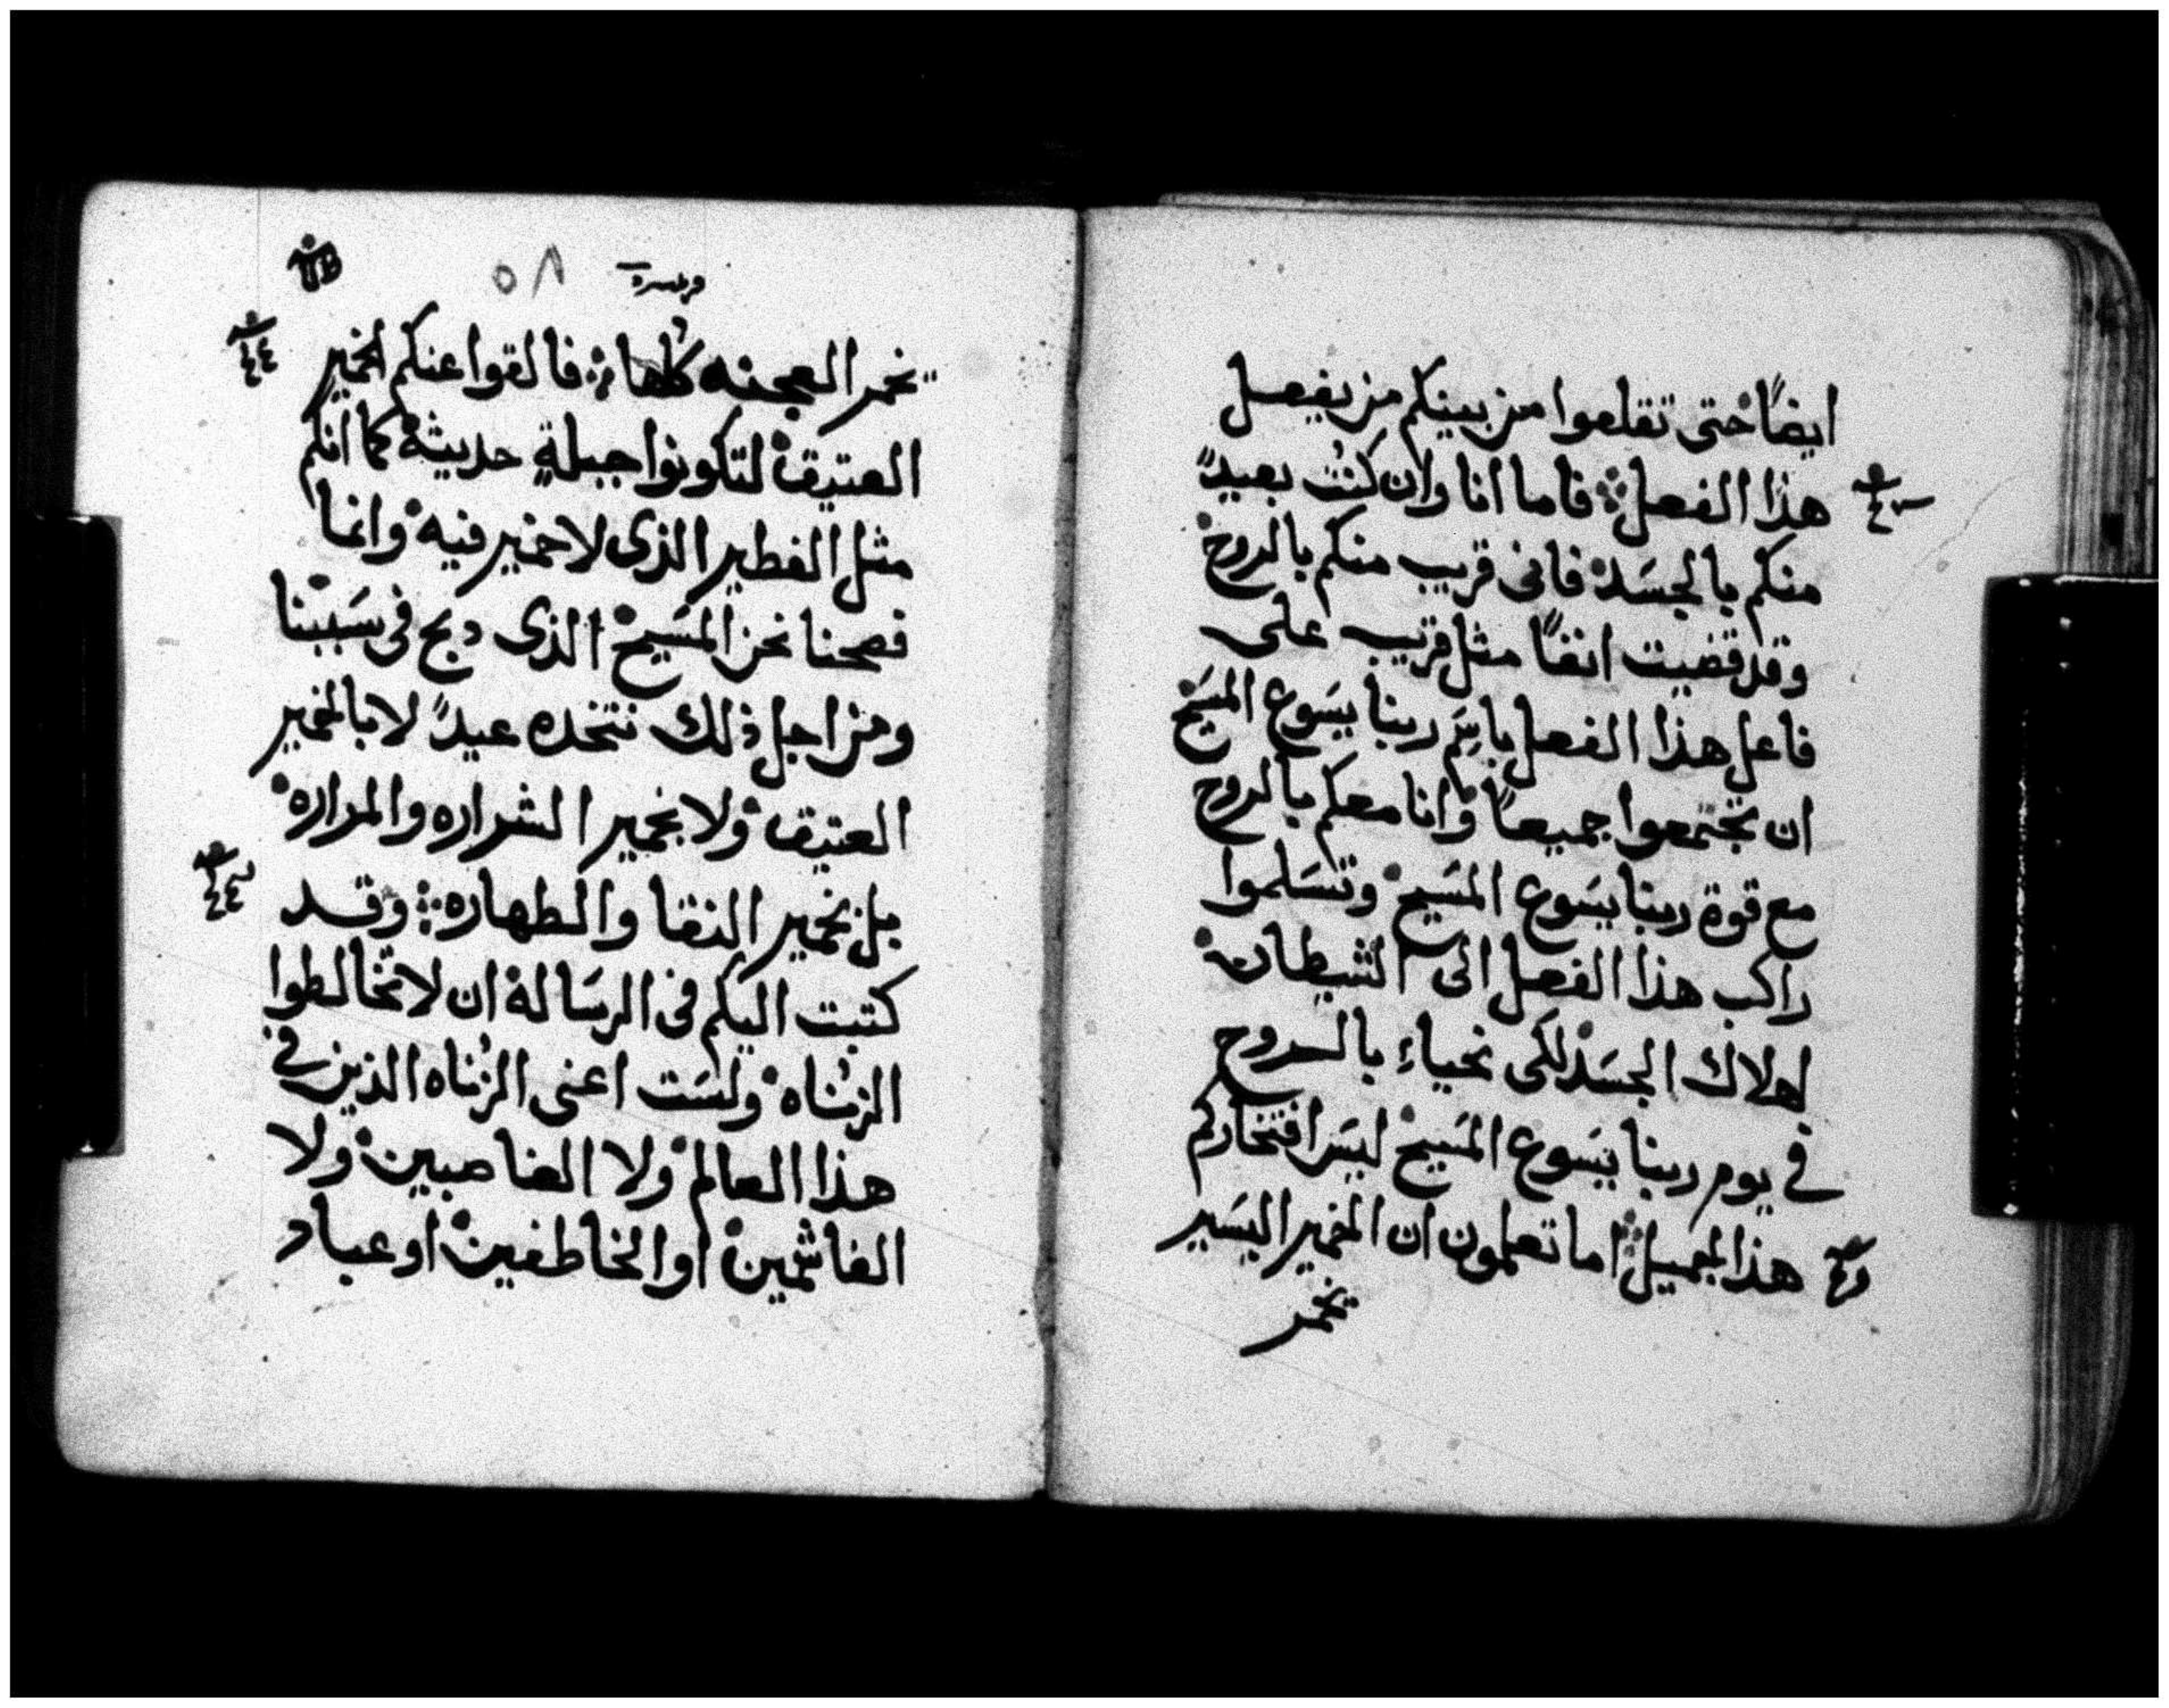 ايضًا حتى تقلعوا من بينكم من يفعل
هذا الفعل؛ فاما انا وان كنت بعيدً
منكم بالجسَد فانى قريب منكم بالروح
وقد قضيت انفًا مثل قريب على
فاعل هذا الفعل باسم ربنا يسَوع المسَيح
ان تجتمعوا جميعًا وانا معكم بالروح
مع قوة ربنا يسَوع المسَيح وتسَلموا
راكب هذا الفعل الى الشيطان
لهلاك الجسَد لكى نحياءِ بالروح
فى يوم ربنا يسَوع المسَيح ليسَ افتخاركم
هذا الجميل؛ اما تعلمون ان الخمير اليسَير
تخمر
٥٨
تخمر العجنه كلها؛ فالقوا عنكم الخمير
٤٤
العتيق لتكونوا جبلةٍ حديثة كما انكم
مثل الفطير الذى لا خمير فيه وانما
فصحنا نحن المسَيح الذى دبح فى سَببنا
ومن اجل ذلك نتخده عيدً لا بالخمير
العتيق ولا بخمير الشراره والمراره
بل بخمير النقا والطهاره؛ وقد
كتبت اليكم فى الرسَالة ان لا تخالطوا
الزناه ولسَت اعنى الزناه الذين فى
هذا العالم ولا الغاصبين ولا
الغاشمين او الخاطفين او عباد